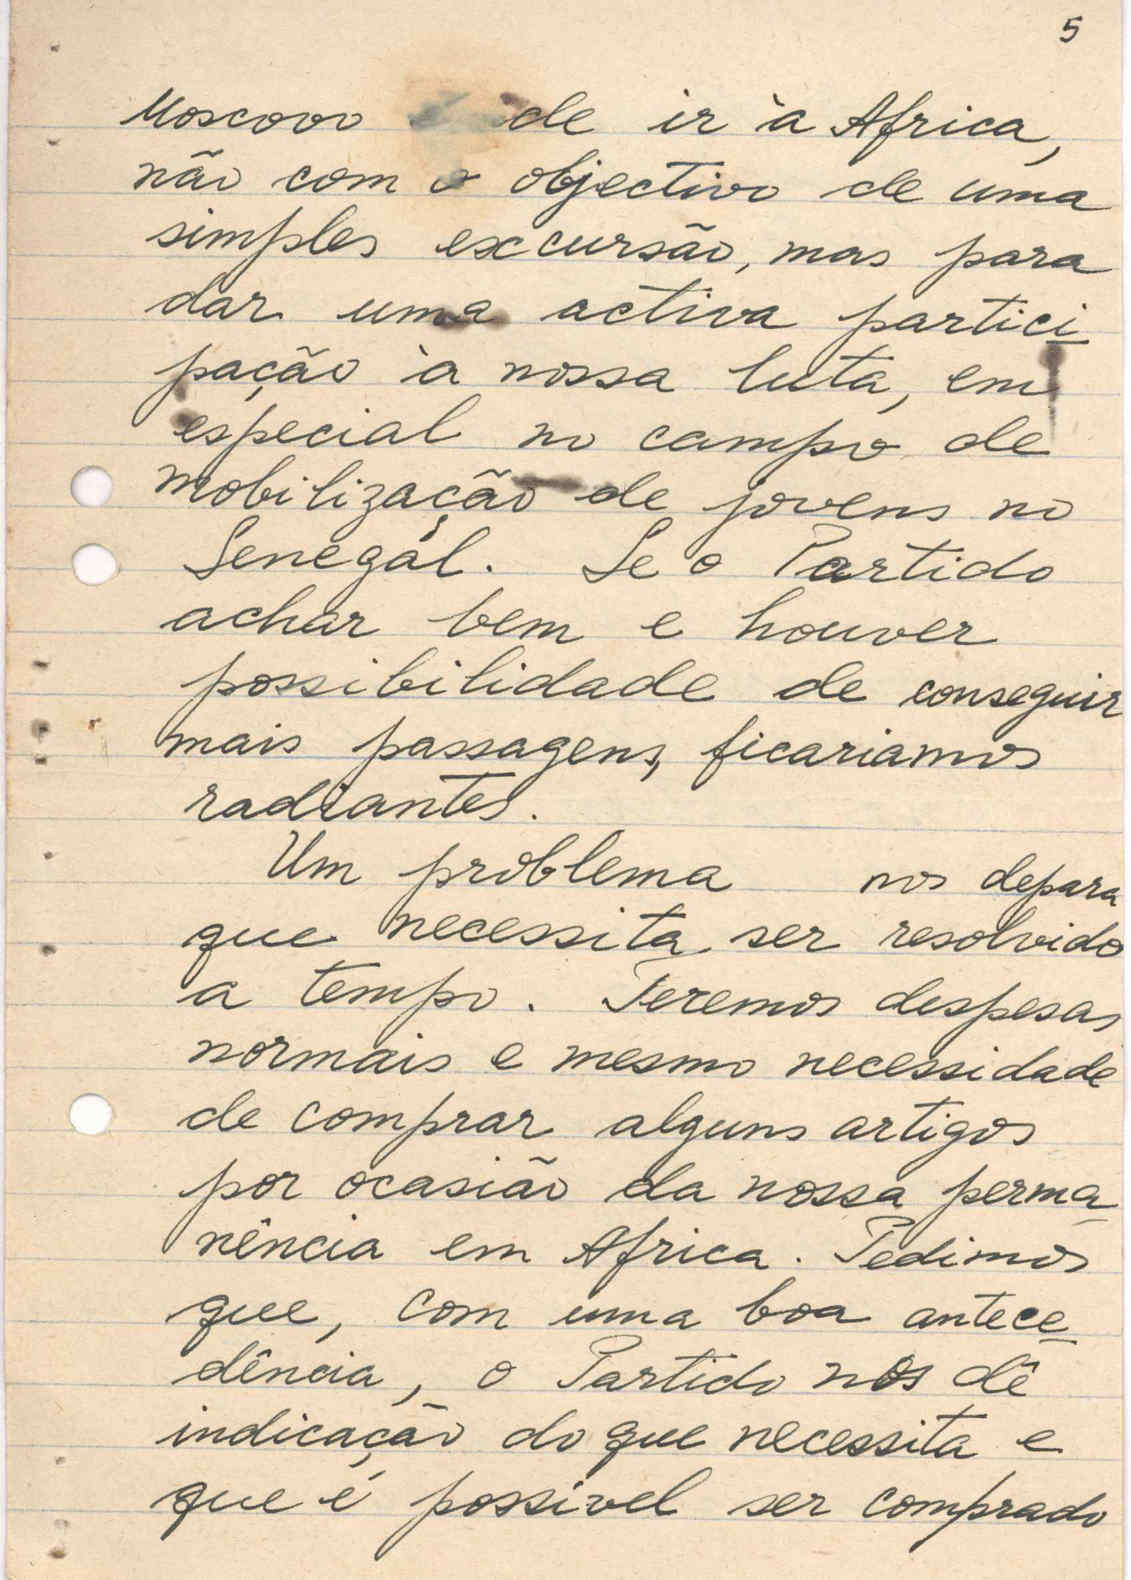 5
Moscovo de ir à Africa,
não com o objectivo de uma
simples excursão, mas para
dar uma activa partici
pação à nossa luta, em
especial no campo de
mobilização de jovens no
Senegál. Se o Partido
achar bem e houver
possibilidade de conseguir
mais passagens, ficariamos
radiantes.
Um problema nos depara
que necessita ser resolvido
a tempo. Teremos despesas
normais e mesmo necessidade
de comprar alguns artigos
por ocasião da nossa perma
nência em Africa. Pedimos
que, com uma boa antece
dência, o Partido nos dê
indicação do que necessita e
que é possivel ser comprado